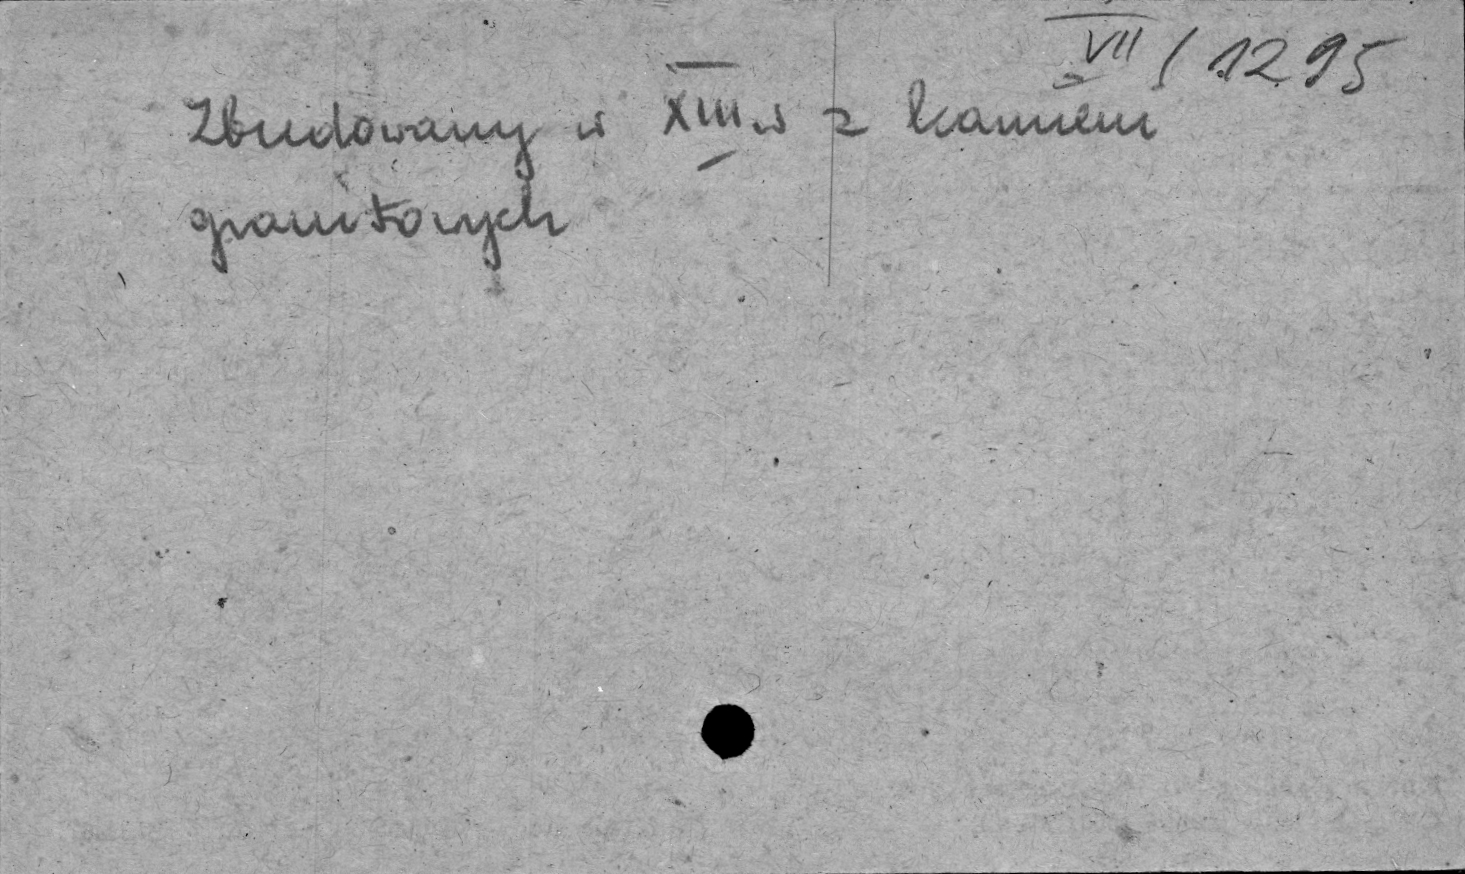 VII / 1295
Zbudowany w XIII w z kamieni
granitowych